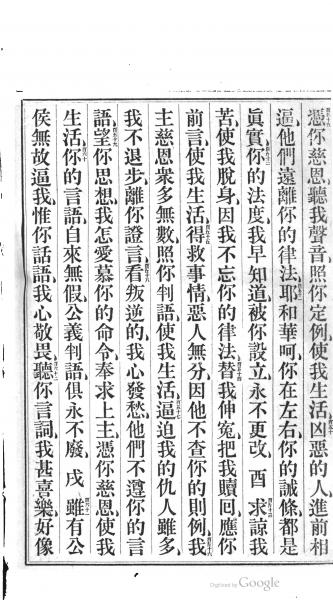 憑你慈恩、聽我聲音、照你定例、使我生活、凶惡的人進前相
逼、他們遠離你的律法、耶和華呵、你在左右、你的誡條都是
眞實、你的法度、我早知道、被你設立、永不更改、 酉 求諒我
苦、使我脫身、因我不忘你的律法、替我伸寃、把我贖回、應你
前言、使我生活、得救事情、惡人無分、因他不查你的則例、我
主慈恩、眾多無數、照你判語、使我生活、逼迫我的仇人雖多、
我不退步、離你證言、看叛逆的、我心發愁、他們不遵你的言
語、望你思想、我怎愛慕你的命令、奉求上主、憑你慈恩、使我
生活、你的言語自來無假、公義判語、俱永不廢、 戌 雖有公
侯無故逼我、惟你話語、我心敬畏、聽你言詞、我甚喜樂、好像
Digitized by Google